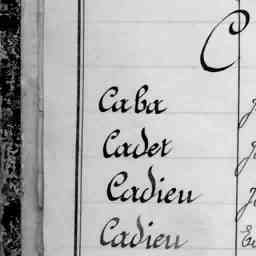 C
Caba
Cadet
Cadieu
Cadieu